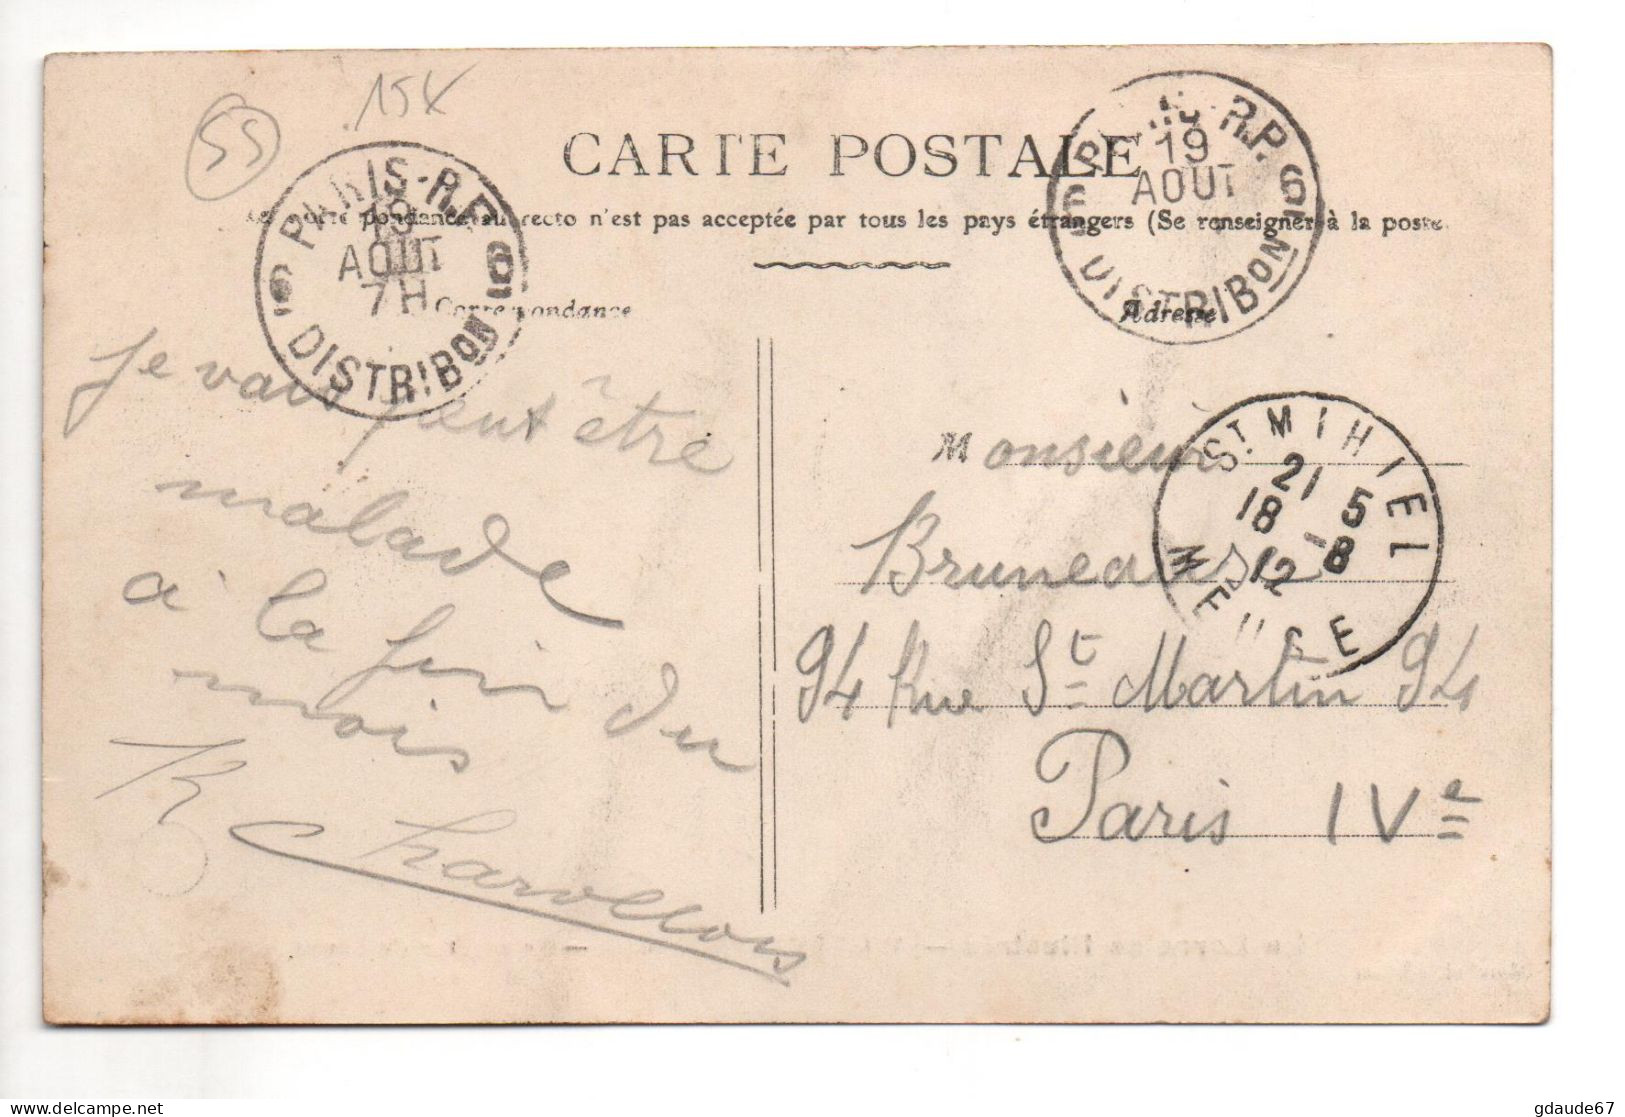 55
15X
CARTE POSTALE
correspondance au recto n'est pas acceptée par tous les pays étrangers (Se renseigner à la poste.
Correspondance
Adresse
PARIS-R.P.
19
AOUT
7H
DISTRIBON
R.P.
19
AOUT
DISTRIBON
ST MIHIEL
21 5
18 -8
12
MEUSE
Je vais peut être
malade
à la fin du
mois
R Charollois
Monsieur
Bruneau
94 Rue St Martin 94
Paris IVe
gdaude67